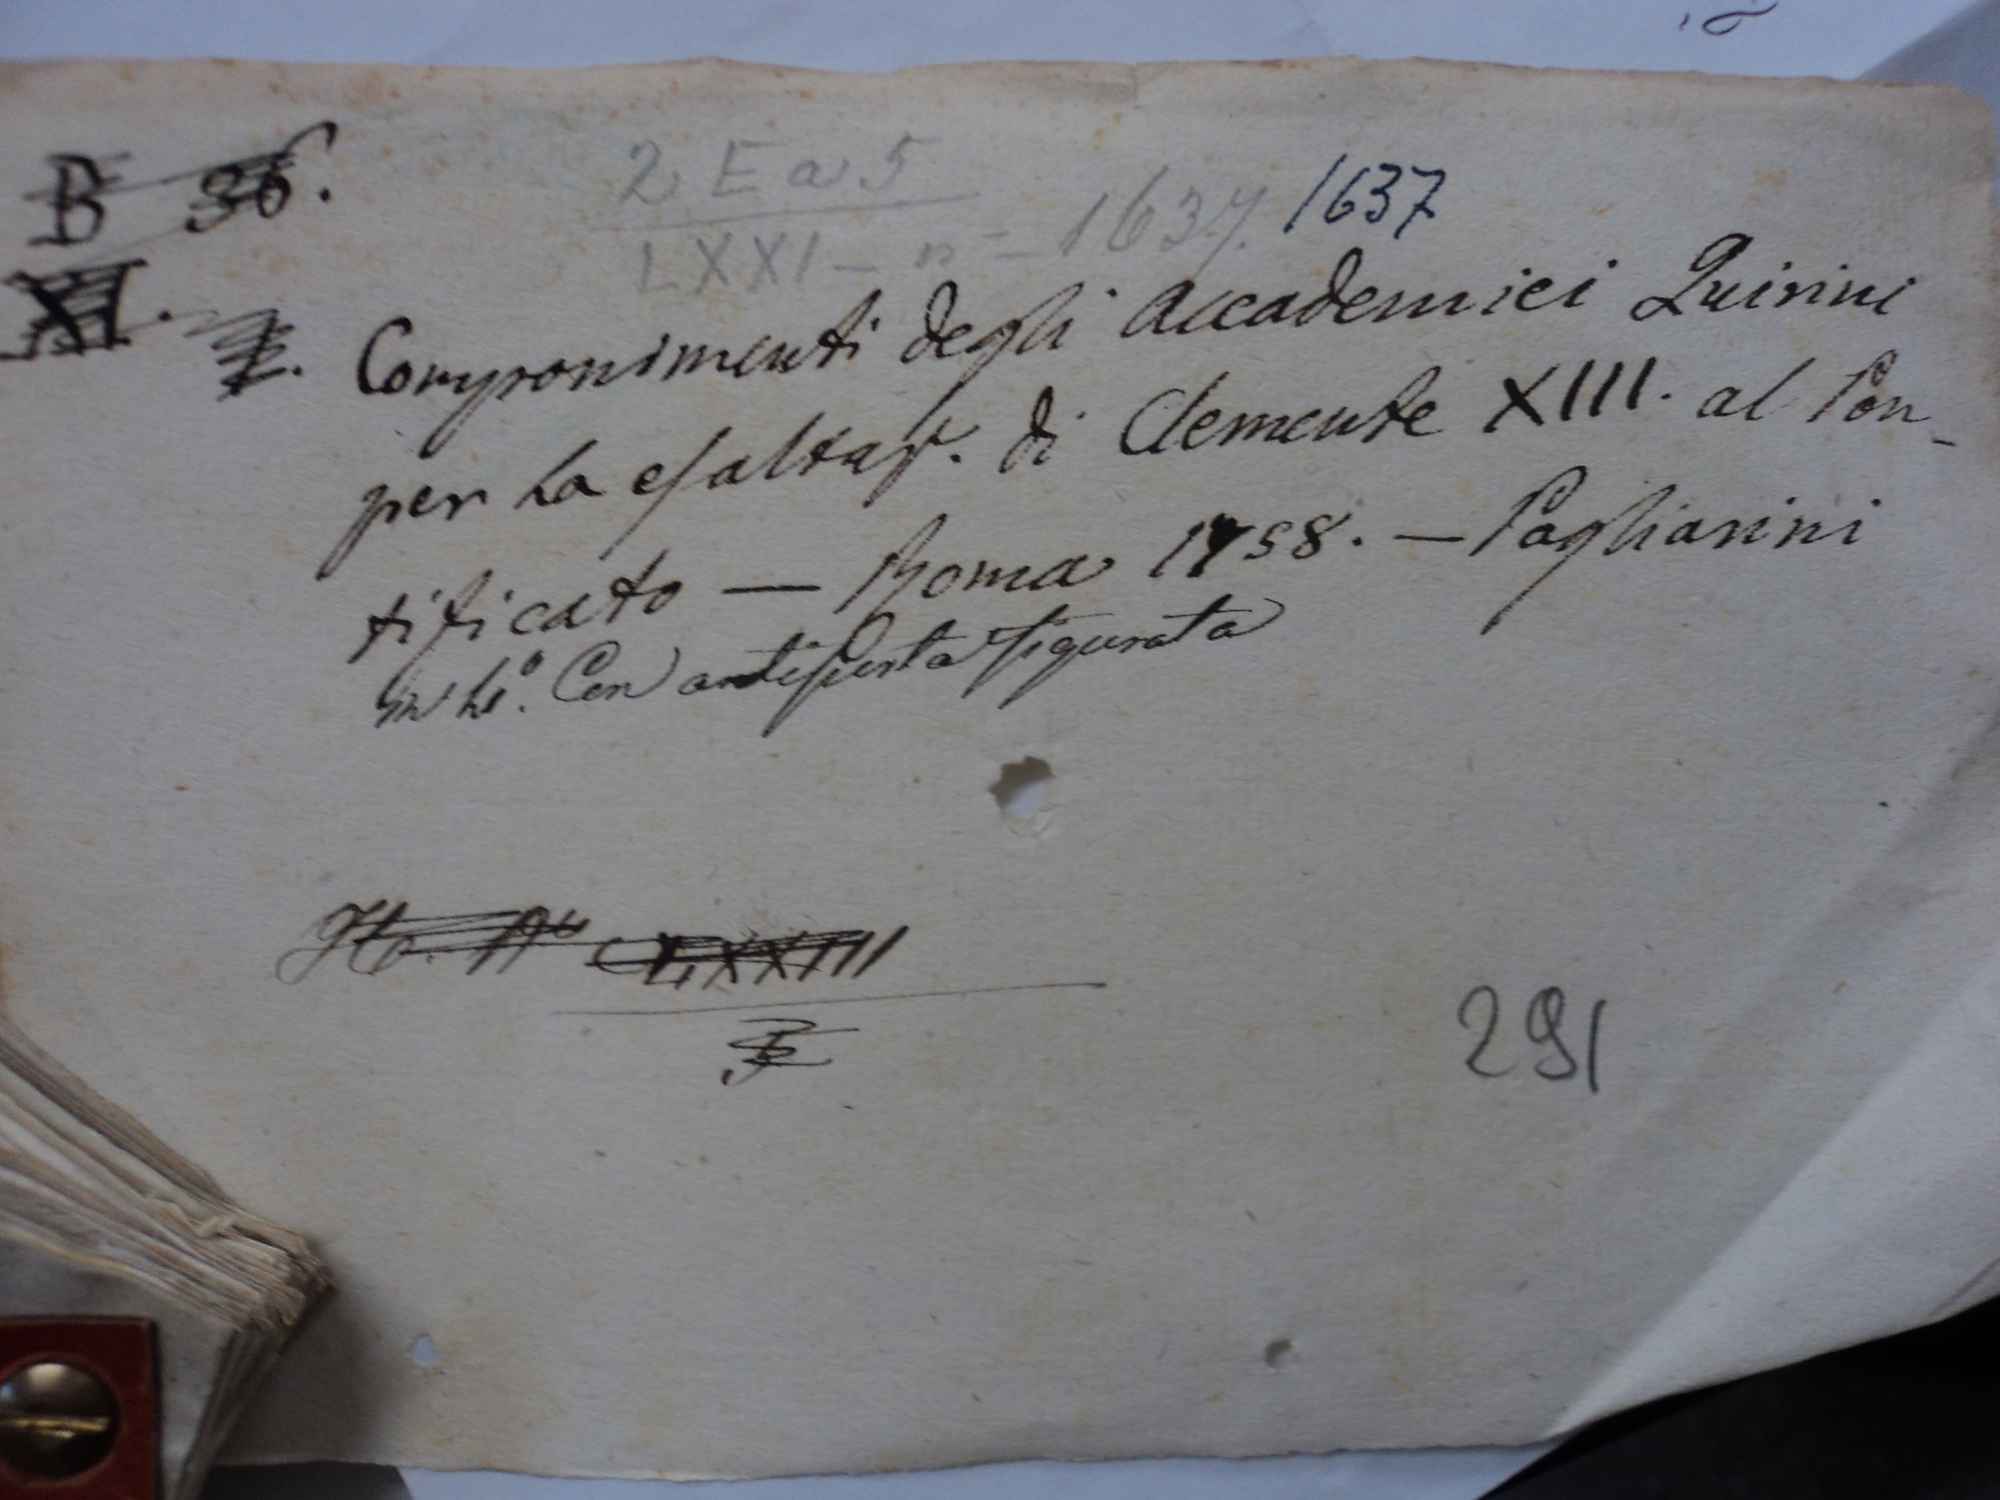 B 36.
2 E a 5
LXXI - n° - 1637. 1637
XI.
Componimenti degli Accademici Quirini
per la esaltaz. di Clemente XIII. al Pon-
tificato — Roma 1758. — Pagliarini
in 4°. Con antiporta figurata
LXXIII
291